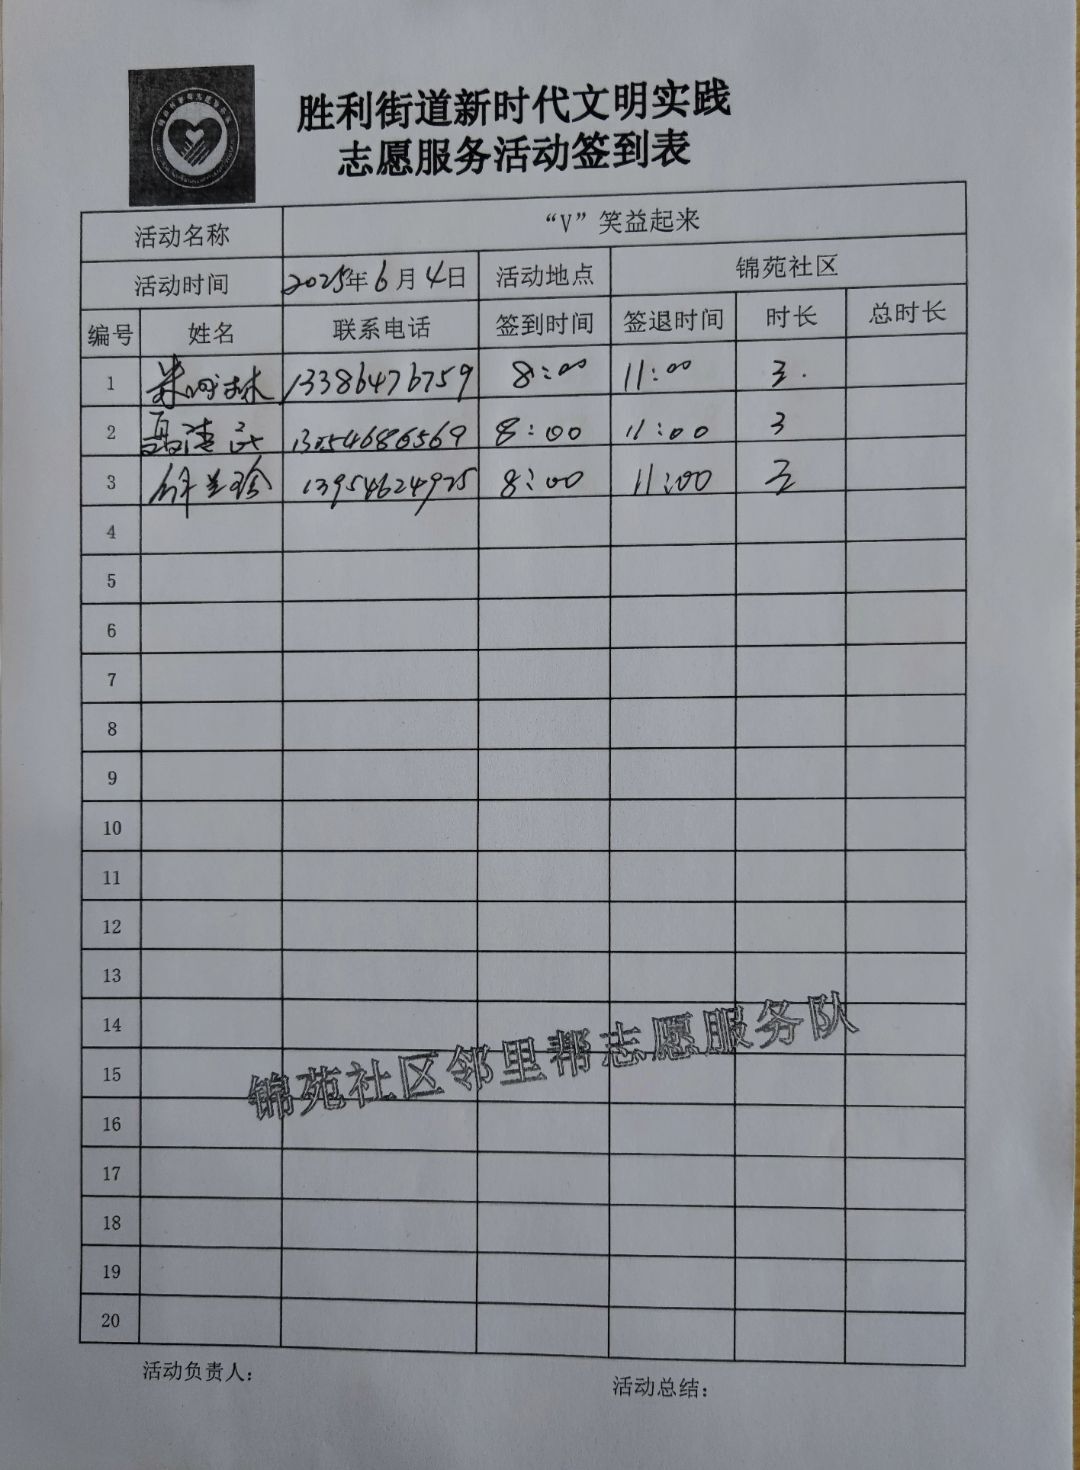 胜利街道新时代文明实践
志愿服务活动签到表
活动名称 “V”笑益起来
活动时间 2025年6月4日 活动地点 锦苑社区
编号 姓名 联系电话 签到时间 签退时间 时长 总时长
1 13386476759 8:00 11:00 3.
2 13054686569 8:00 11:00 3
3 徐兰珍 13954624925 8:00 11:00 3
4
5
6
7
8
9
10
11
12
13
14
15
16
17
18
19
20
锦苑社区邻里帮志愿服务队
活动负责人：
活动总结：